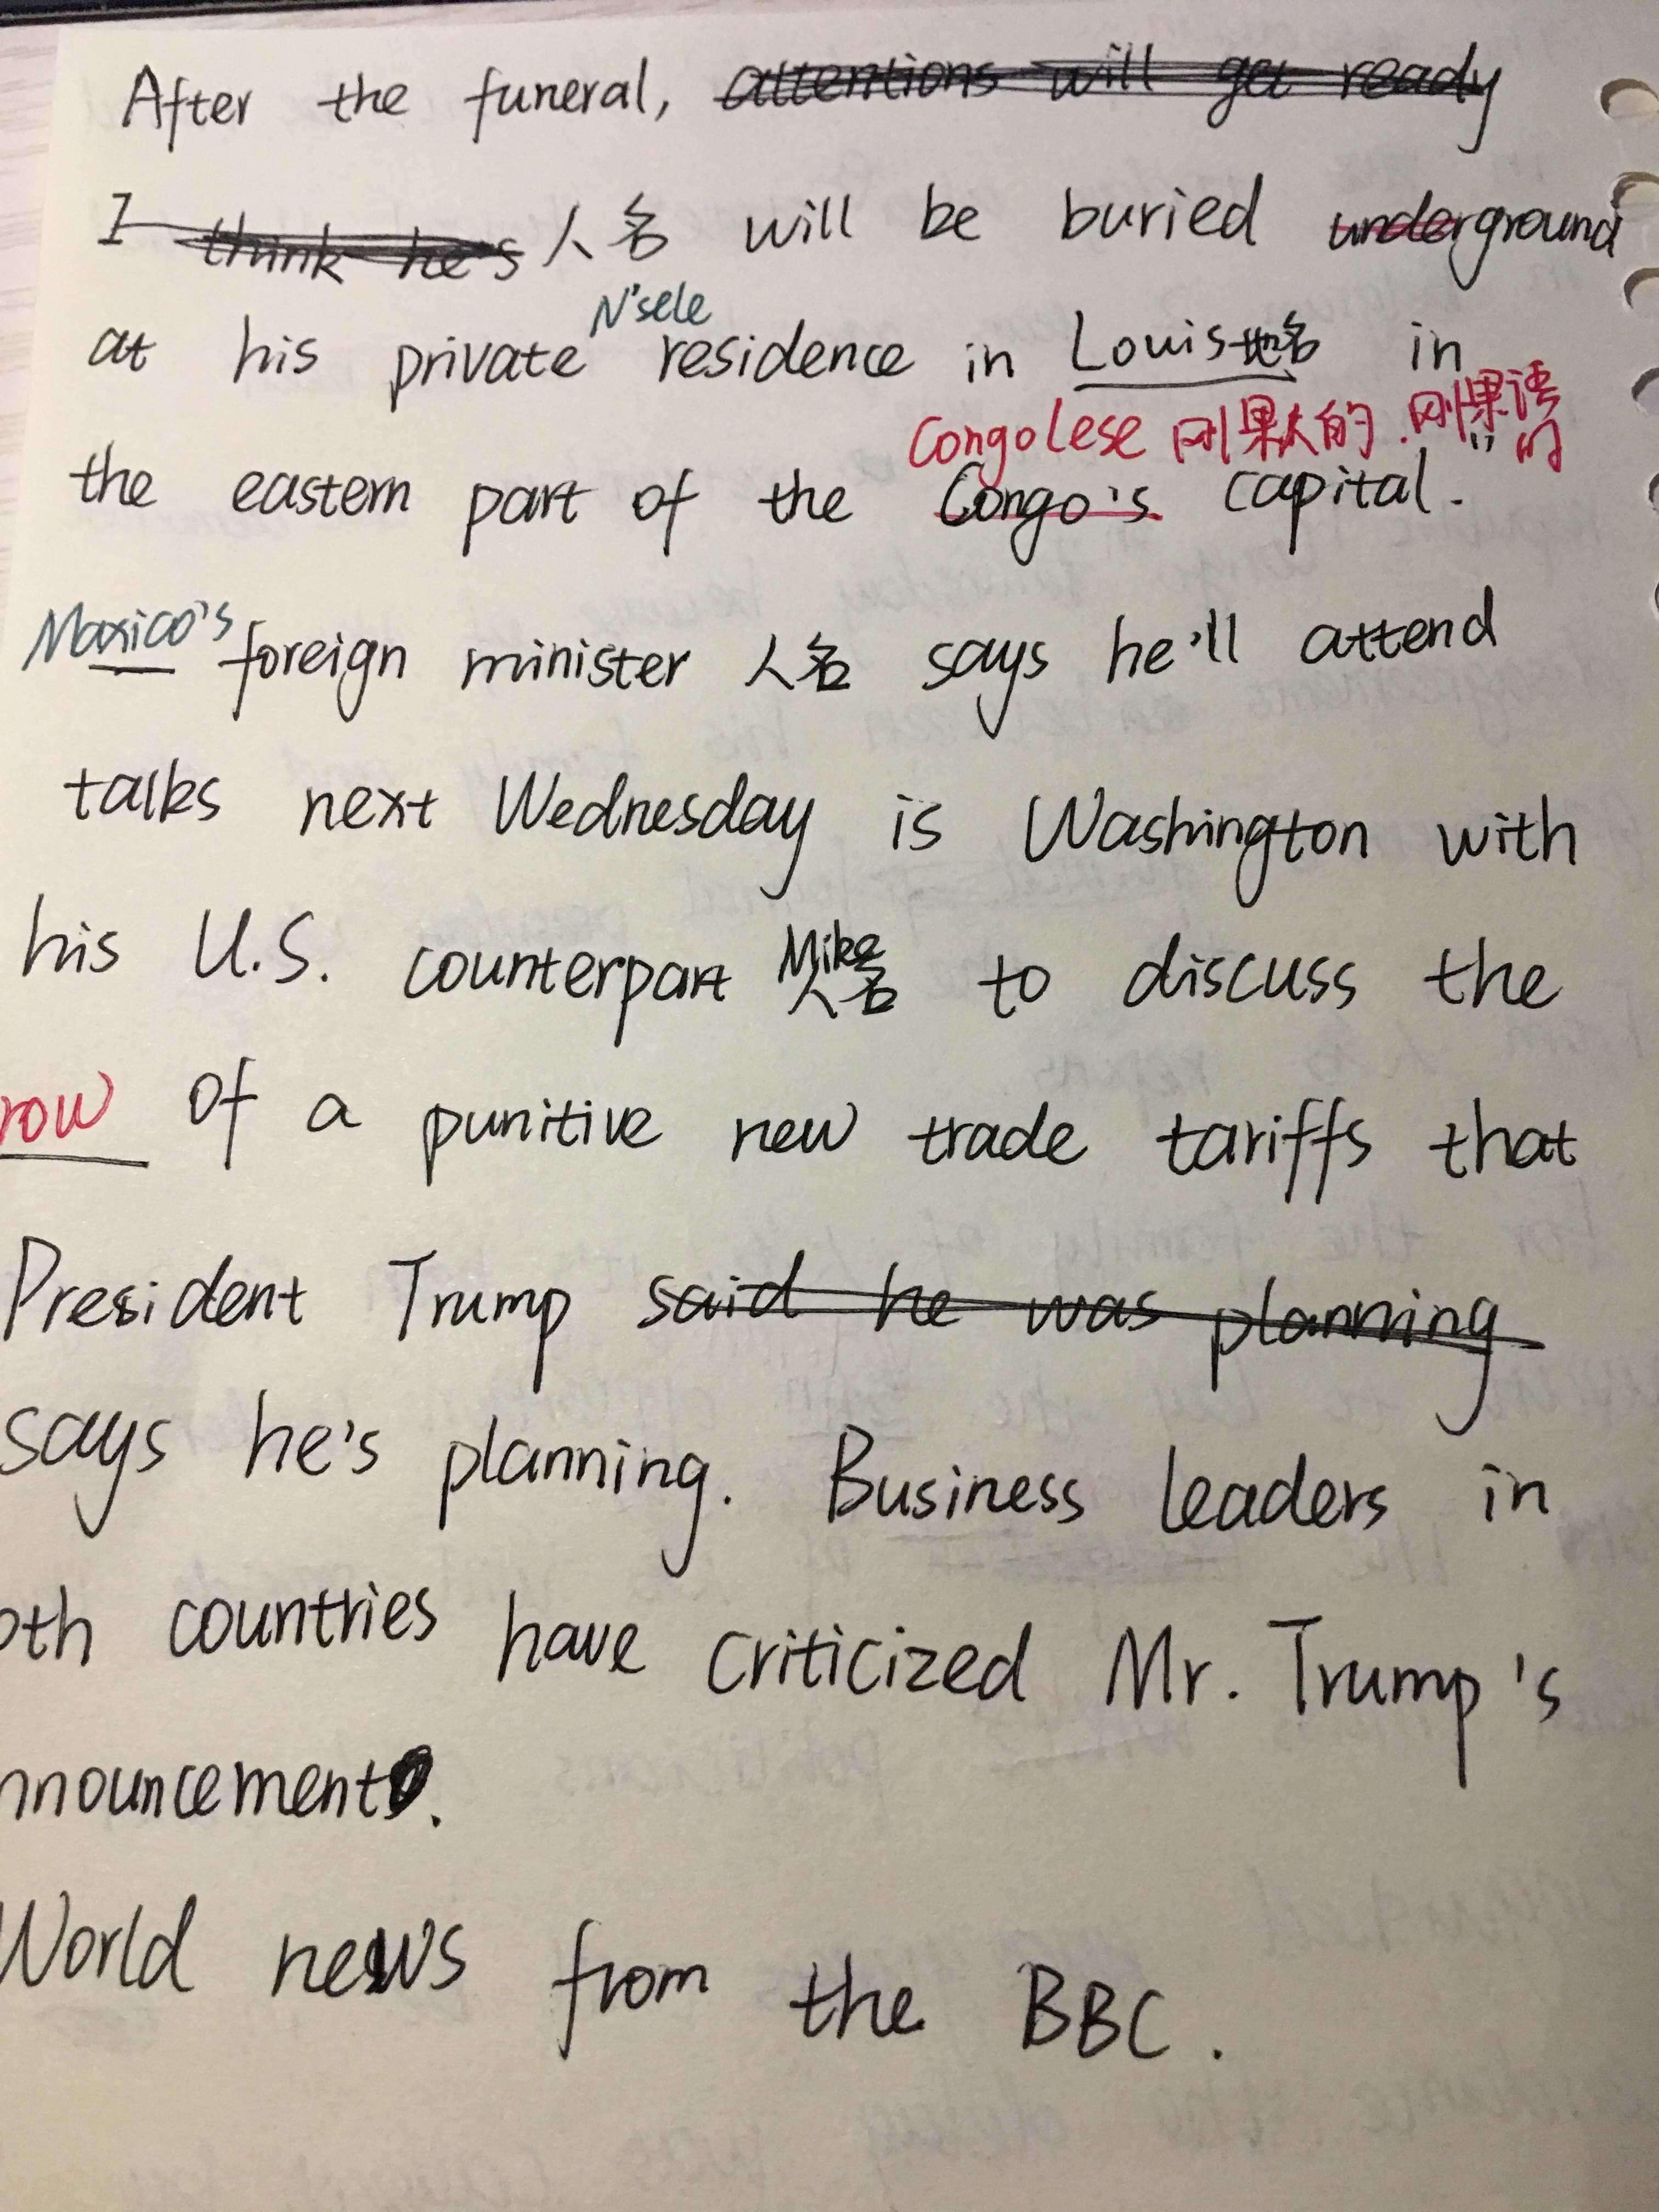 After the funeral, attentions will get ready
I think he's 人名 will be buried underground
N'sele
at his private residence in Louis地名 in
Congolese 刚果人的.刚果语的
the eastern part of the Congo's capital.
Maxico's foreign minister 人名 says he'll attend
talks next Wednesday is Washington with
his U.S. counterpart Mike人名 to discuss the
row of a punitive new trade tariffs that
President Trump said he was planning
says he's planning. Business leaders in
oth countries have criticized Mr. Trump's
nnouncement.
World news from the BBC.